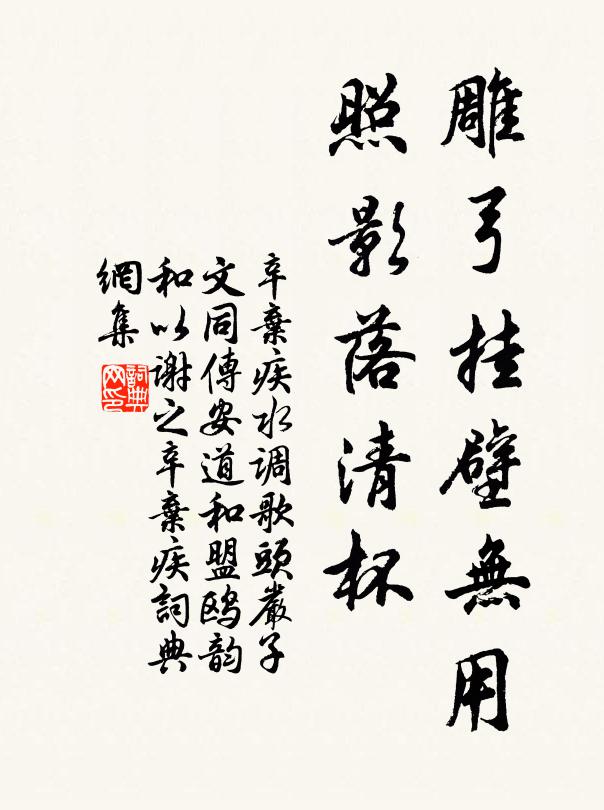 雕弓挂壁無用
照影落清杯
辛棄疾水调歌頭嚴子
文同傅安道和盟鸥韵
和以谢之辛棄疾詞典
網集
詞典
网印